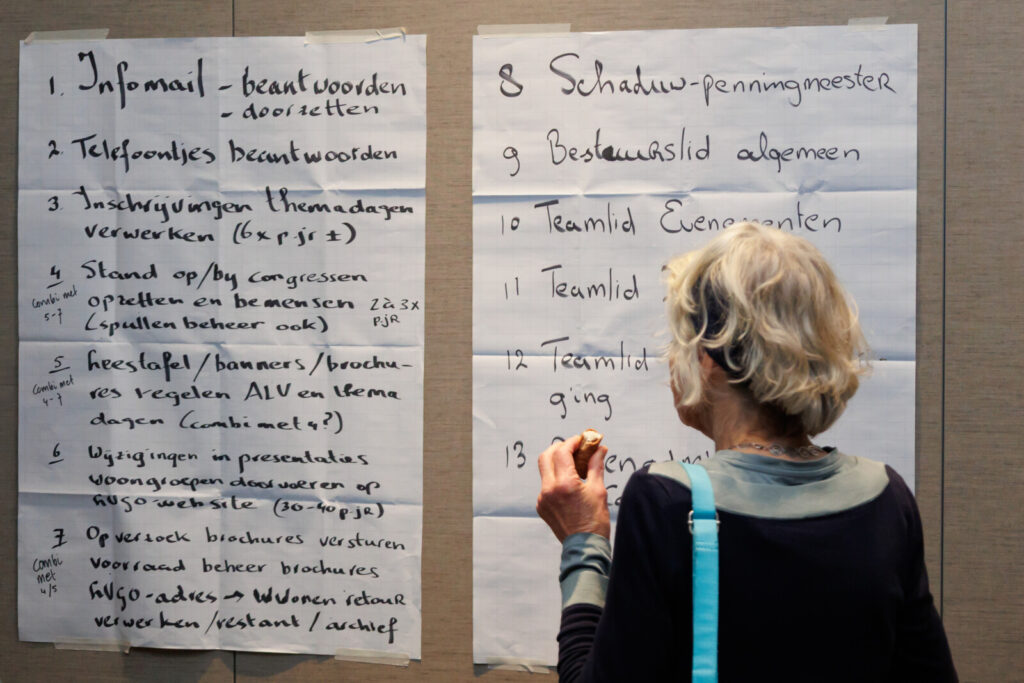 1. Infomail - beantwoorden
- doorzetten
2. Telefoontjes beantwoorden
3. Inschrijvingen themadagen
verwerken (6x p.jr ±)
4 Stand op/by congressen
combi met
5-7
opzetten en bemensen 2 à 3x
p.jR
(spullen beheer ook)
5 Leestafel/banners/brochu-
combi met
4-7
res regelen ALV en thema
dagen (combi met 4?)
6 Wijzigingen in presentaties
woongroepen doorvoeren op
LVGO-website (30-40 p.jR)
7 Op verzoek brochures versturen
combi
met
4/5
voorraad beheer brochures
LVGO-adres → WVonen retour
verwerken/restant/archief
8 Schaduw-penningmeester
9 Bestuurslid algemeen
10 Teamlid Evenementen
11 Teamlid
12 Teamlid
ging
13